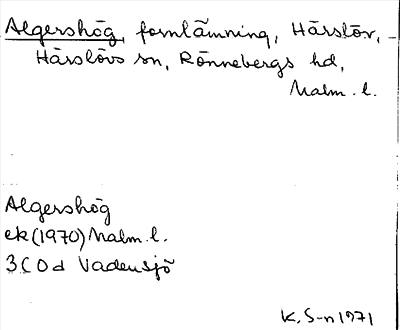 Algershög, fornlämning, Härslöv,
Härslövs sn, Rönnebergs hd,
Malm. l.
Algershög
ek (1970) Malm. l.
3C 0d Vadensjö
K. S-n 1971